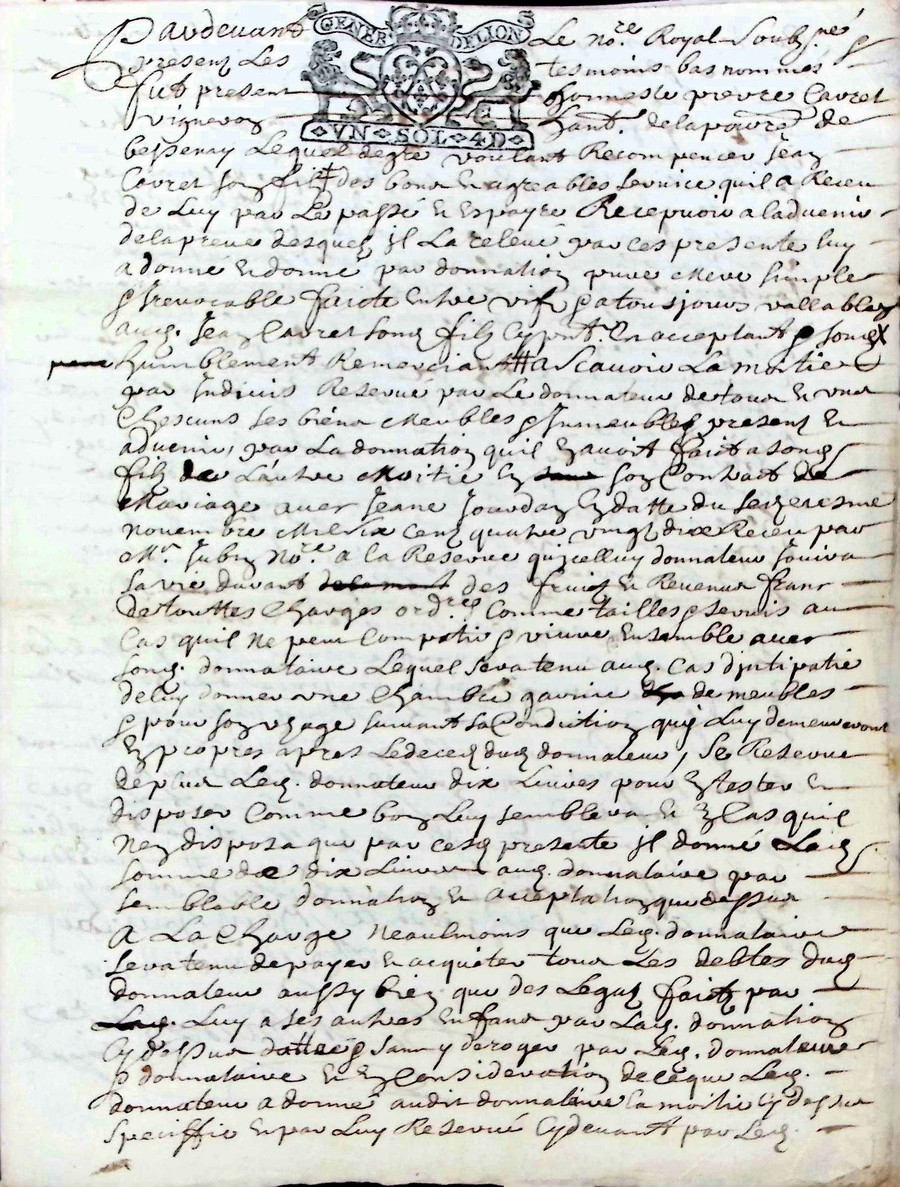 GENER DE LION
VN SOL 4 D
Pardevant Le no.re Royal Soubz.nés &
presentz Les tesmoins bas nommés
fut present honneste pierre Cavret
vigneron habt. de la parroisse de
bessenay Lequel de gre voulant Recompencer Jean
Cavret son filz des bons et agreables service quil a Receu
de Luy par Le passé et espayre Recepvoir a ladvenir
de la preuve desquelz jl La relevé par ces presente luy
a donné et donne par donnation pure mere simple
& Irrevocable faicte entre vifz & a tousjours vallables
aud. Jean Cavret sond. filz Cy pnt. et acceptant & sond.
humblement Remerciant # a Scavoir La moitie
par Indivis Reservé par Le donnateur de tous et uns
Chescuns ses biens meubles & Immeubles present et
advenir, par La donnation quil en avoit faict a sond.
filz de Lautre Moitié en son Contract de
Mariage avec Jeane Jourdan en datte du seizeiesme
novembre mil six cens quatre vingt dix Receu par
M.r Jubin No.re a la Reserve qujcelluy donnateur Jouira
sa vie durant des fruits et Revenus franc
de touttes Charges ord.res Comme tailles & servis au
Cas quil ne peut Compatir & vivre ensemble avec
sond. donnataire Lequel sera tenu aud. Cas dintipatie
de luy donner une Chambre garnie de meubles
& pour son usage suivant sa Condiction quj Luy demeureront
en propres apres Le decedz dud. donnateur, Se Reserve
de plus Led. donnateur dix Livres pour en tester et
disposer Comme bon Luy semblera et en Cas quil
N'en disposa que par cesd. presente jl donne Lad.
somme de dix Livres aud. donnataire par
semblable donnation et acceptation que dessus
A La Charge Neaulmoins que Led. donnataire
sera tenu de payer et acquiter tous Les debtes dud.
donnateur aussy bien que des Legatz faictz par
Luy a ses autres enfans par Lad. donnation
Cy dessus dattée & sans y deroger par Led. donnateur
& donnataire et en Consideration de ce que Led.
donnateur a donné audit donnataire la moitie Cy dessus
speciffie et par Luy Reservé Cy devant par Led.